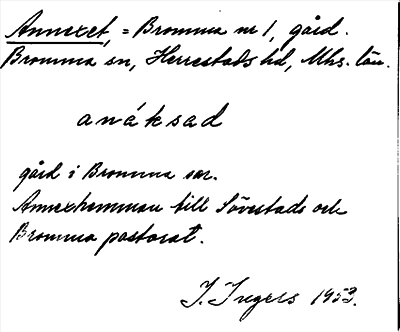 Annexet, = Bromma nr 1, gård.
Bromma sn, Herrestads hd, Mhs. län.
anáksad
gård i Bromma sn.
Annexhemman till Sövestads och
Bromma pastorat.
I. Ingers 1953.